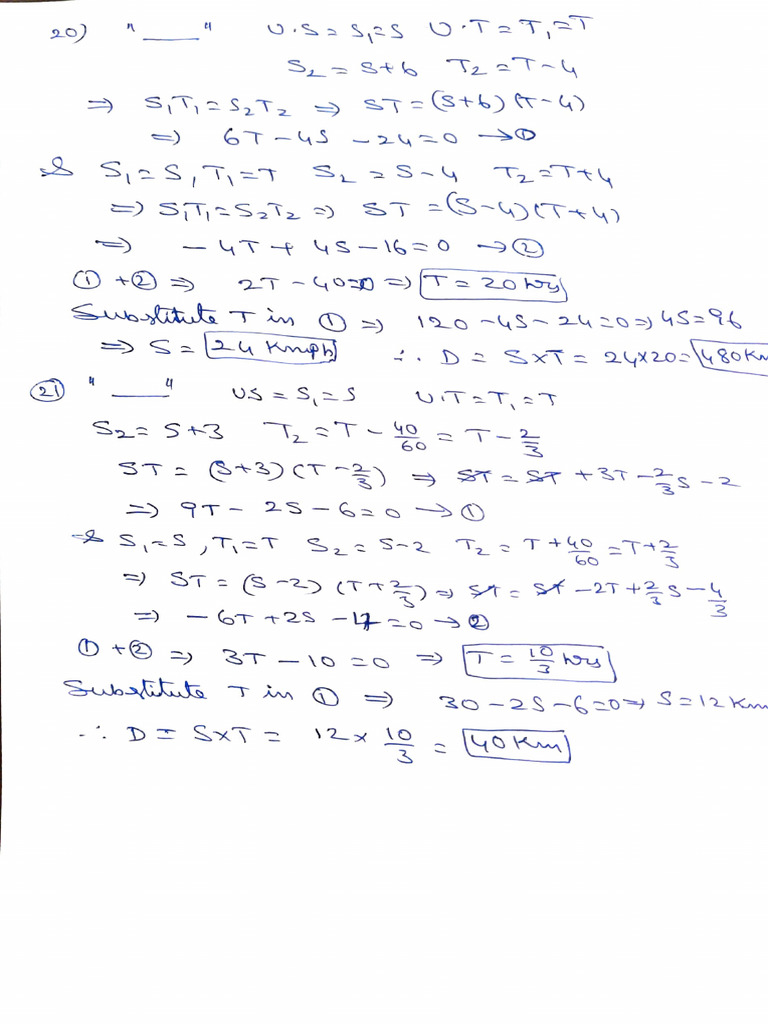 20) "____" U.S = S₁ = S U.T = T₁ = T
S₂ = S+6 T₂ = T-4
⇒ S₁T₁ = S₂T₂ ⇒ ST = (S+6) (T-4)
⇒ 6T - 4S - 24 = 0 → ①
& S₁ = S, T₁ = T S₂ = S-4 T₂ = T+4
⇒ S₁T₁ = S₂T₂ ⇒ ST = (S-4) (T+4)
⇒ -4T + 4S - 16 = 0 → ②
① + ② ⇒ 2T - 40 = 0 ⇒ T = 20 hrs
Substitute T in ① ⇒ 120 - 4S - 24 = 0 ⇒ 4S = 96
⇒ S = 24 Kmph ∴ D = S×T = 24×20 = 480 Km
21 "____" US = S₁ = S U.T = T₁ = T
S₂ = S+3 T₂ = T - 40/60 = T - 2/3
ST = (S+3) (T - 2/3) ⇒ ST = ST + 3T - 2/3 S - 2
⇒ 9T - 2S - 6 = 0 → ①
& S₁ = S, T₁ = T S₂ = S-2 T₂ = T + 40/60 = T + 2/3
⇒ ST = (S-2) (T + 2/3) ⇒ ST = ST - 2T + 2/3 S - 4/3
⇒ -6T + 2S - 4 = 0 → ②
① + ② ⇒ 3T - 10 = 0 ⇒ T = 10/3 hrs
Substitute T in ① ⇒ 30 - 2S - 6 = 0 ⇒ S = 12 Km
∴ D = S×T = 12 × 10/3 = 40 Km